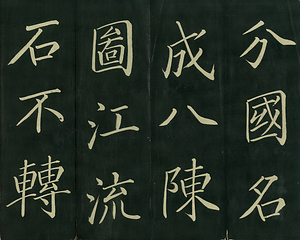 分國名
成八陳
圖江流
石不轉